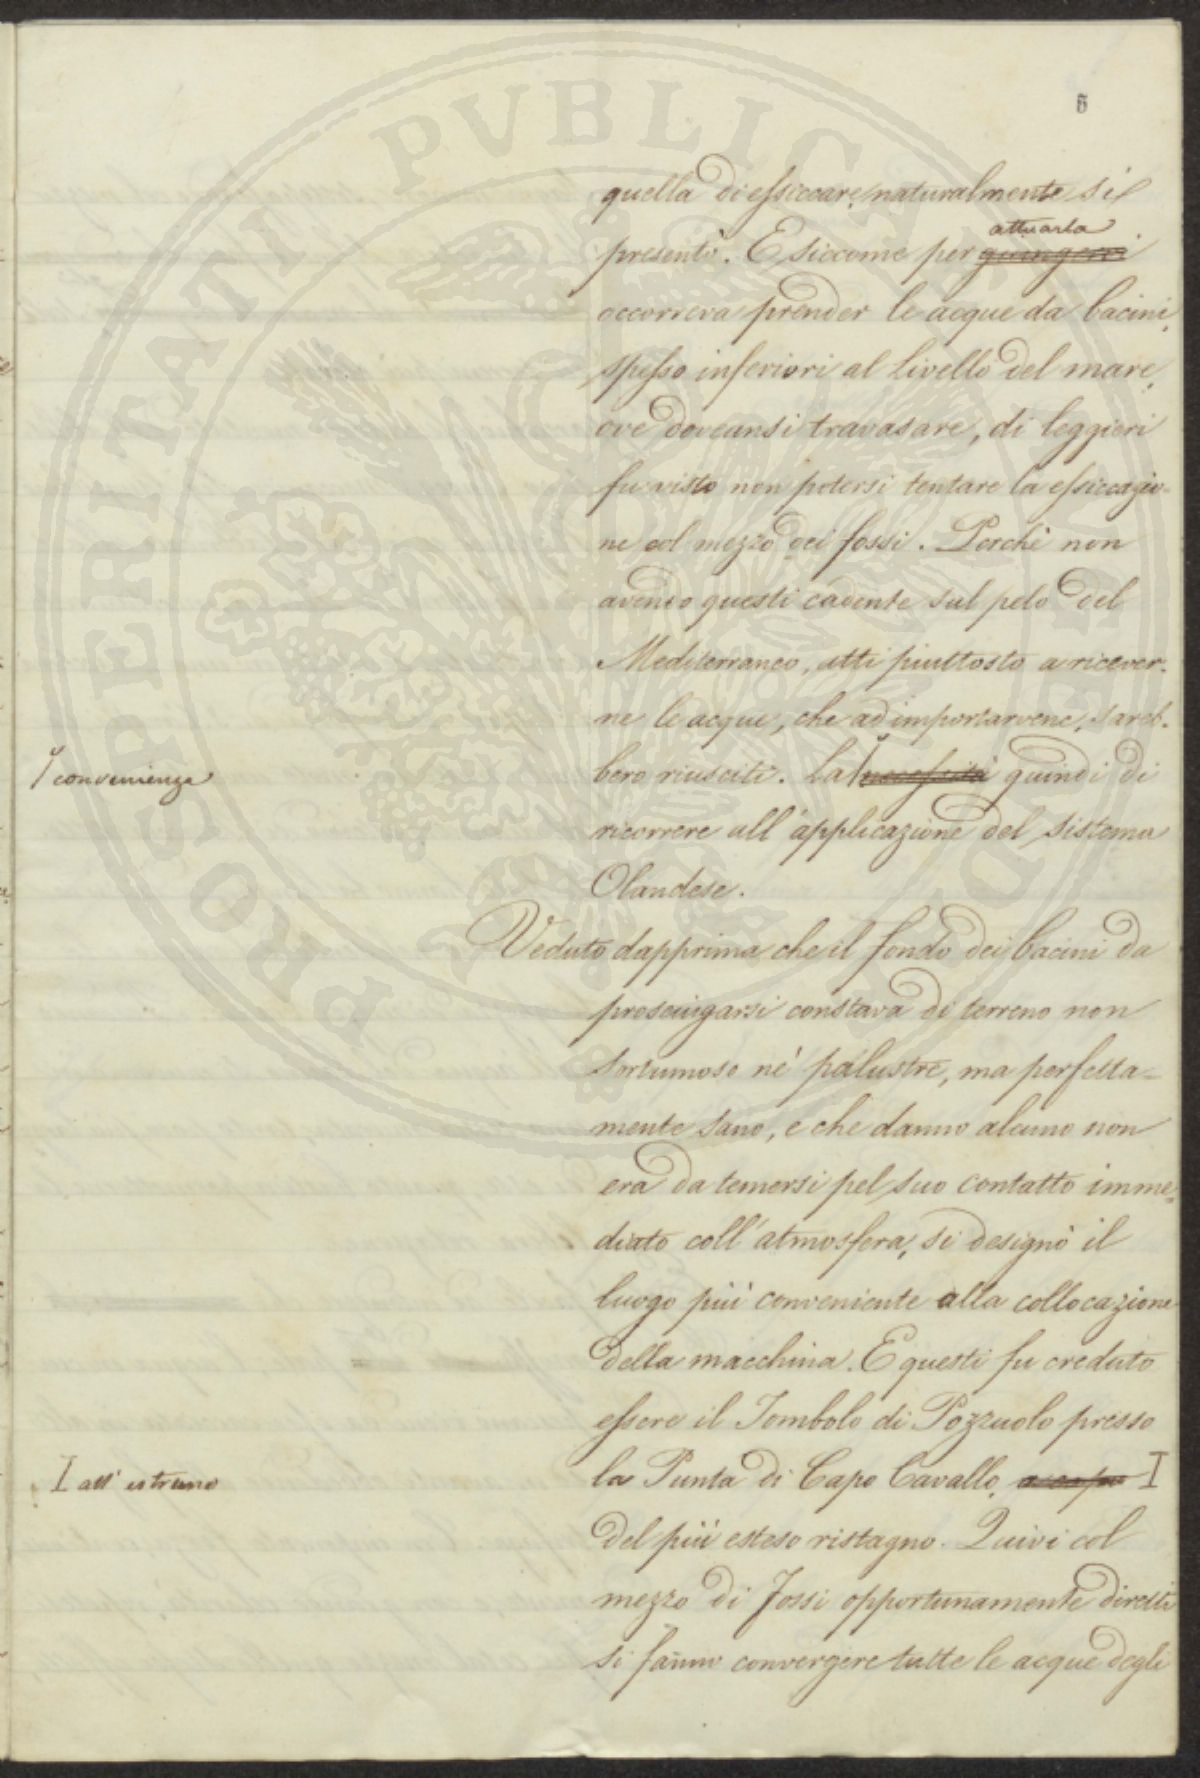 5
quella di essiccare naturalmente si
attuarla
presentò. E siccome per giungervi
occorreva prender le acque da bacini
spesso inferiori al livello del mare,
ove doveansi travasare, di leggieri
fu visto non potersi tentare la essiccazio-
ne col mezzo dei fossi. Perchè non
avendo questi cadente sul pelo del
Mediterraneo, atti piuttosto a ricever-
ne le acque, che ad importarvene, sareb-
convenienza
bero riusciti. La necessità quindi di
ricorrere all'applicazione del sistema
Olandese.
Veduto dapprima che il fondo dei bacini da
prosciugarsi constava di terreno non
tortumoso nè palustre, ma perfetta-
mente sano, e che danno alcuno non
era da temersi pel suo contatto imme-
diato coll'atmosfera, si designò il
luogo più conveniente alla collocazione
della macchina. E questi fu creduto
essere il Tombolo di Pozzuolo presso
I all'estremo
la Punta di Capo Cavallo, a capo I
del più esteso ristagno. Quivi col
mezzo di fossi opportunamente diretti
si fanno convergere tutte le acque degli
PROSPERITATI PVBLICAE